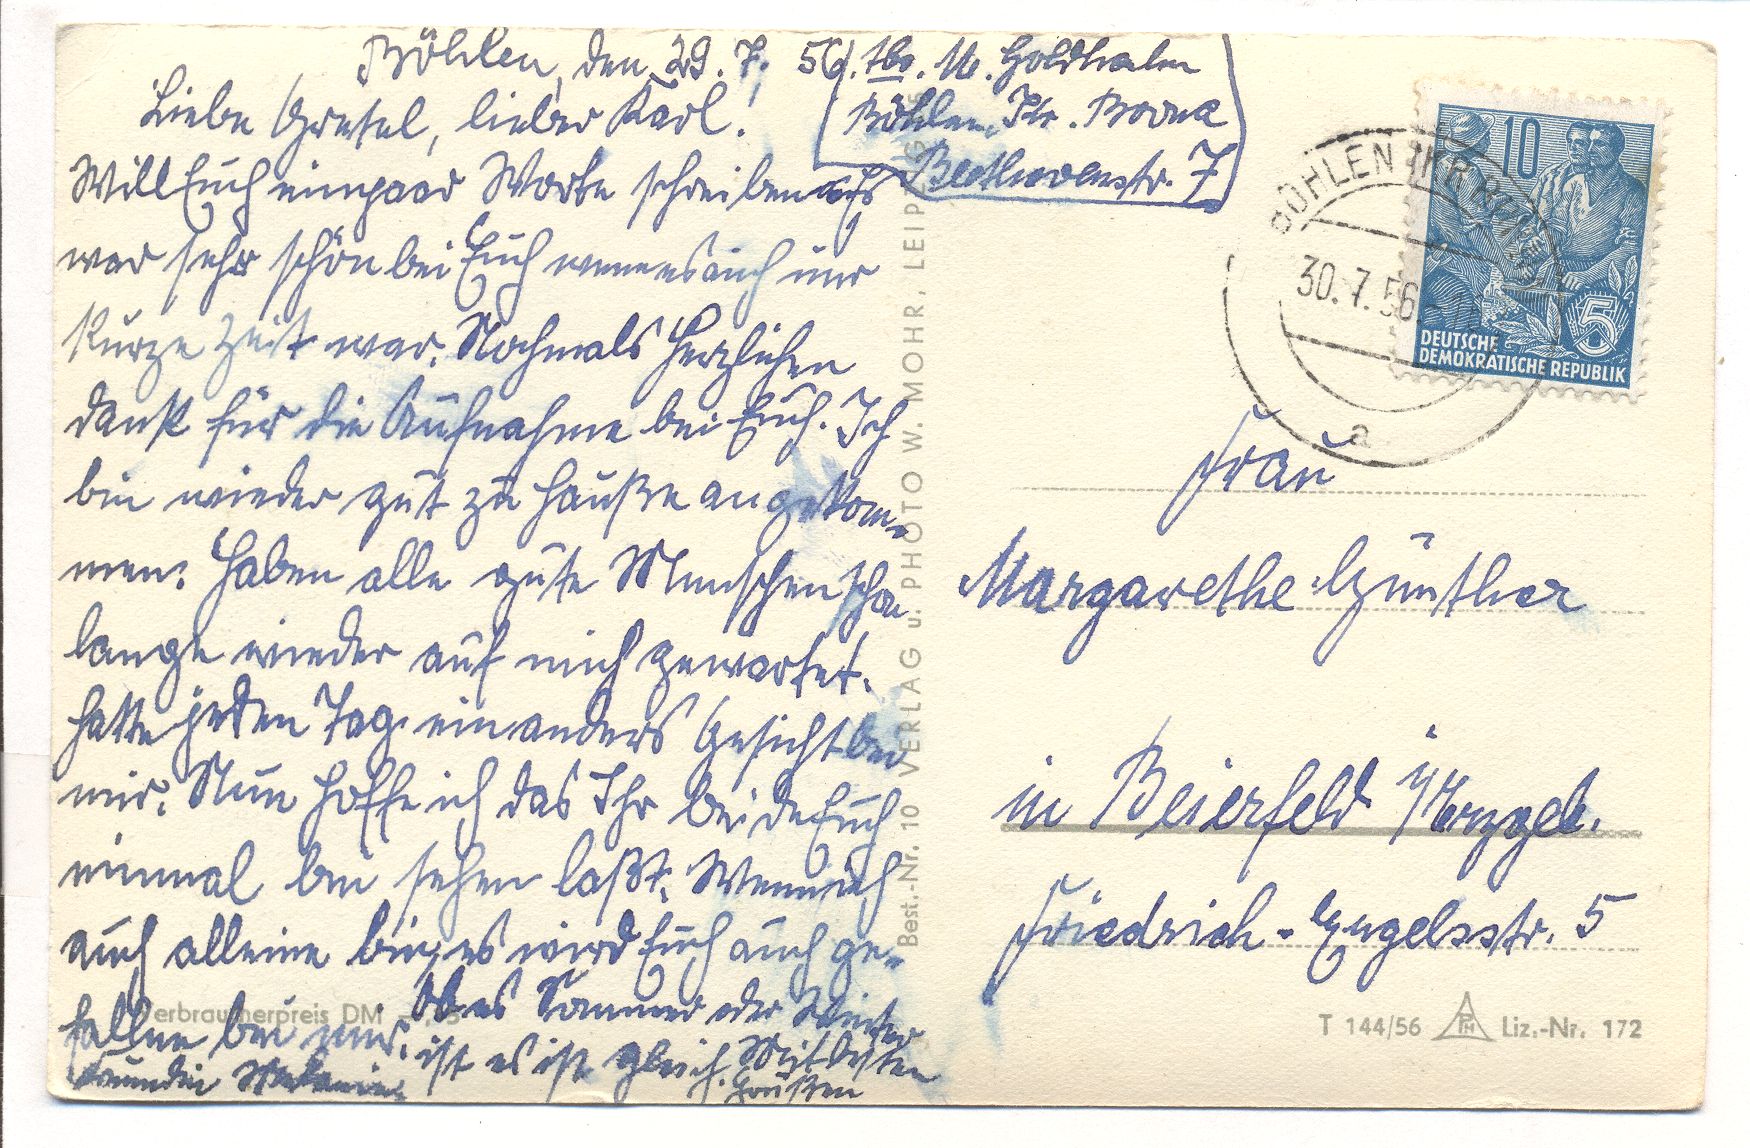 Böhlen, den 29. 7. 56.
Abs. M. Goldhahn
Böhlen, Kr. Borna
Beethovenstr. 7
Liebe Gretel, lieber Karl!
Will Euch ein paar Worte schreiben. Es
war sehr schön bei Euch wenn es auch nur
kurze Zeit war. Nochmals Herzlichen
Dank für die Aufnahme bei Euch. Ich
bin wieder gut zu Hauße angekom-
men. Haben alle gute Menschen schon
lange wieder auf mich gewartet.
Hatte jeden Tag ein anders Gesicht bei
mir. Nun hoffe ich das Ihr beide Euch
einmal bei sehen laßt. Wenn ich
auch alleine bin, es wird Euch auch ge-
fallen bei mir. Ob es Sommer oder Winter
ist es ist gleich. Mit besten
Grüßen
Freundin
Frau
Margarethe Günther
in Beierfeld i/Erzgeb.
Friedrich-Engelsstr. 5
BÖHLEN (KR BORNA)
30.7.56
a
10
5
DEUTSCHE
DEMOKRATISCHE REPUBLIK
Best.-Nr. 10 VERLAG u. PHOTO W. MOHR, LEIPZIG
Verbraucherpreis DM
T 144/56 PH Liz.-Nr. 172